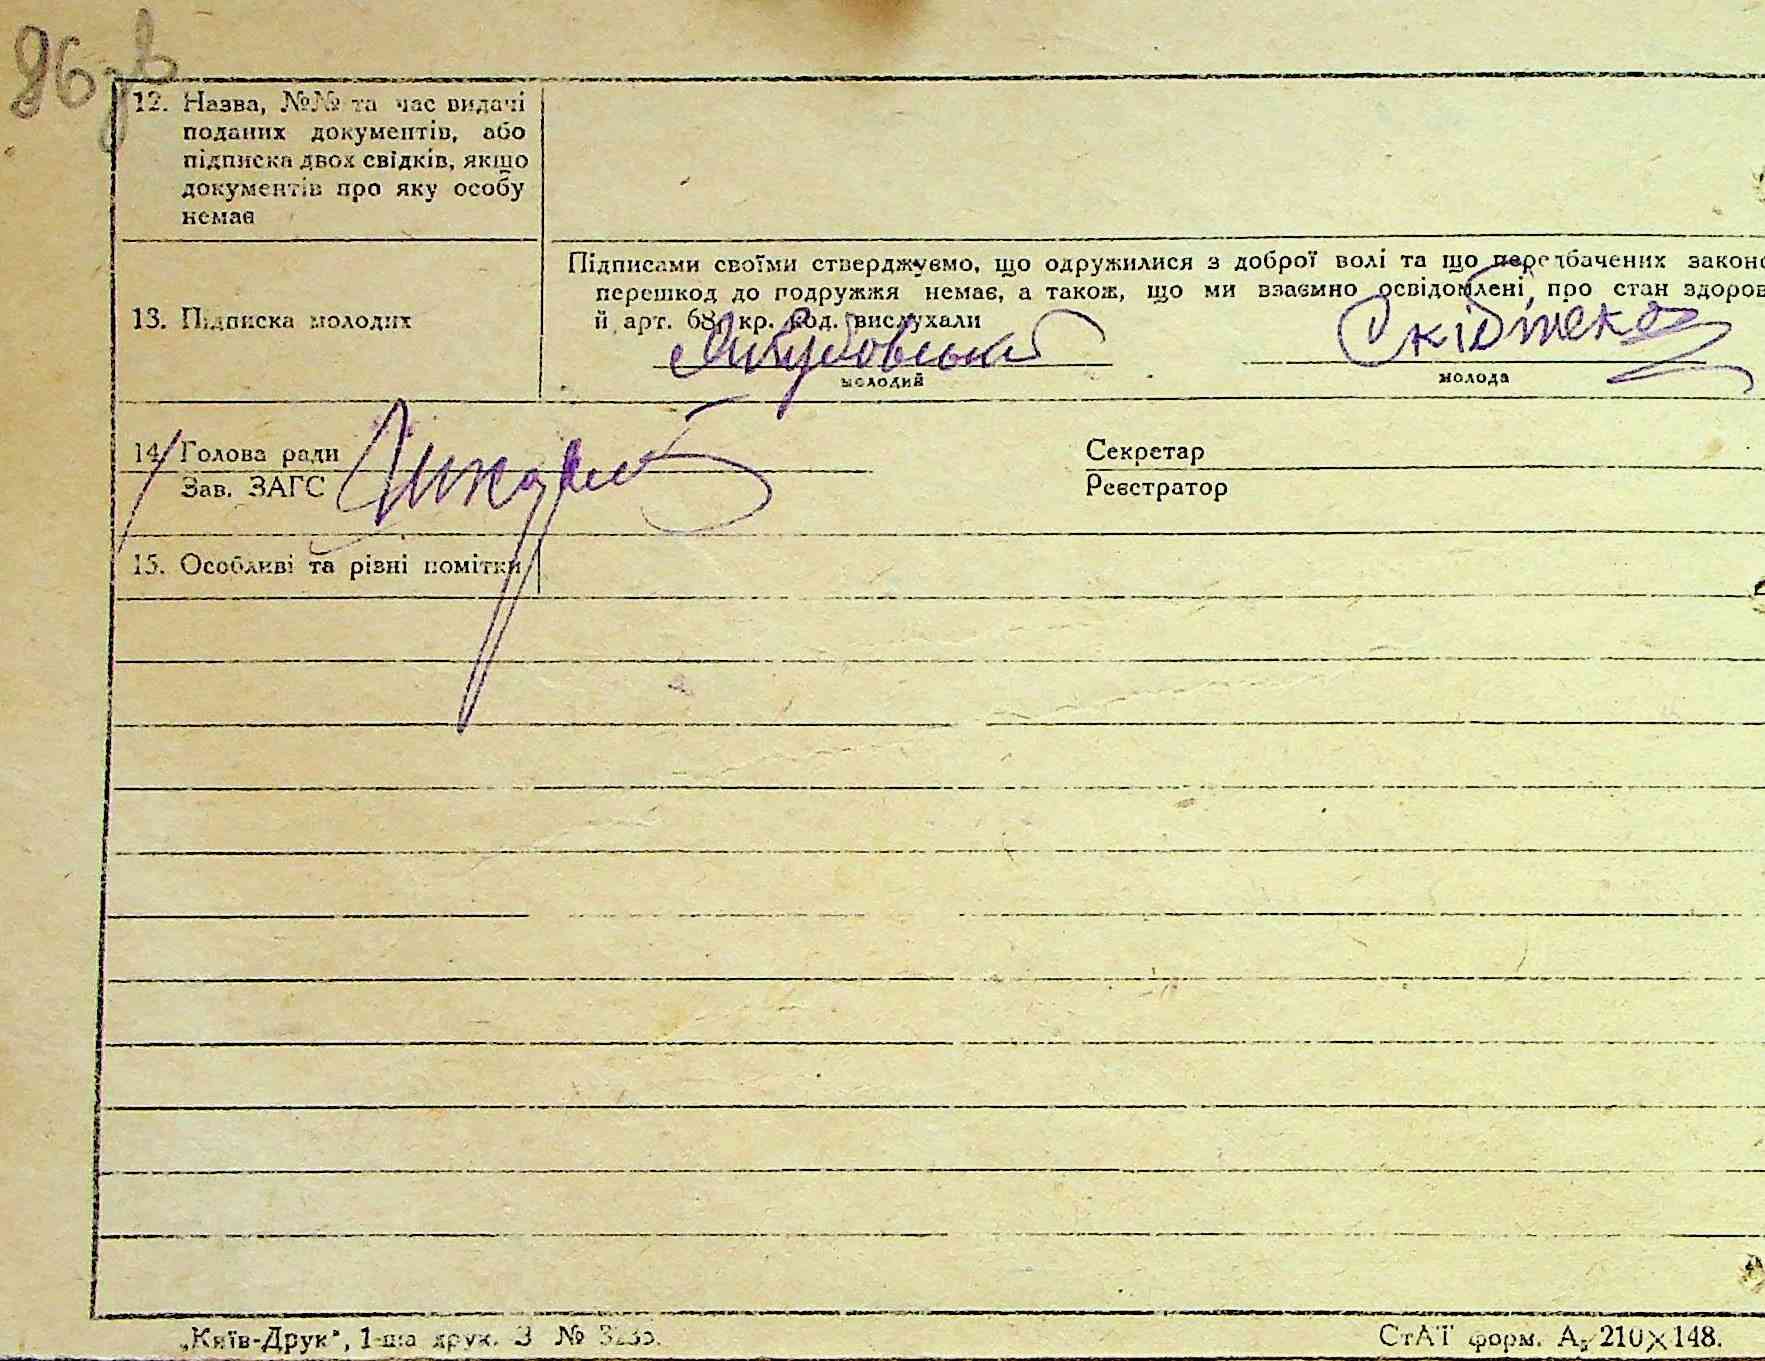 86 зв
12. Назва, №№ та час видачі
поданих документів, або
підписка двох свідків, якщо
документів про яку особу
немає
Підписами своїми стверджуємо, що одружилися з доброї волі та що передбачених законо
перешкод до подружжя немає, а також, що ми взаємно освідомлені про стан здоров
13. Підписка молодих
й арт. 68 кр. код. вислухали
молодий
молода
14. Голова ради
Секретар
Зав. ЗАГС
Реєстратор
15. Особливі та різні помітки
„Київ-Друк“, 1-ша друк. З №
СтАТ форм. А5 210×148.